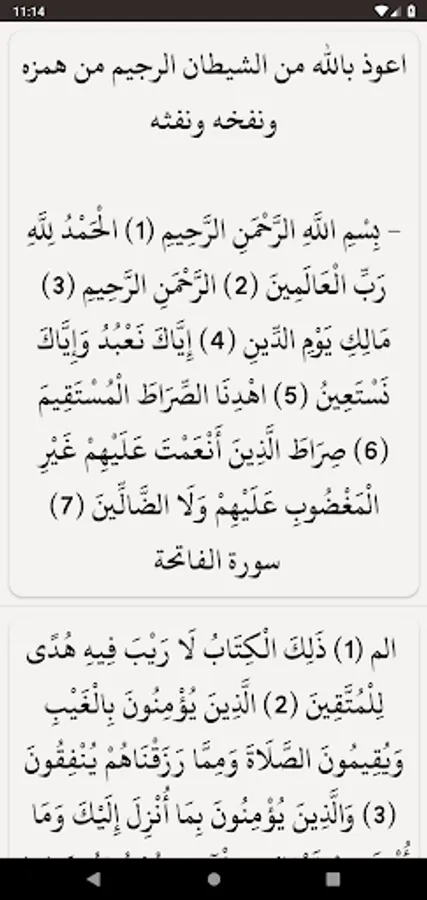 11:14
اعوذ بالله من الشيطان الرجيم من همزه
ونفخه ونفثه
– بِسْمِ اللَّهِ الرَّحْمَنِ الرَّحِيمِ (1) الْحَمْدُ لِلَّهِ
رَبِّ الْعَالَمِينَ (2) الرَّحْمَنِ الرَّحِيمِ (3)
مَالِكِ يَوْمِ الدِّينِ (4) إِيَّاكَ نَعْبُدُ وَإِيَّاكَ
نَسْتَعِينُ (5) اهْدِنَا الصِّرَاطَ الْمُسْتَقِيمَ
(6) صِرَاطَ الَّذِينَ أَنْعَمْتَ عَلَيْهِمْ غَيْرِ
الْمَغْضُوبِ عَلَيْهِمْ وَلَا الضَّالِّينَ (7)
سورة الفاتحة
الم (1) ذَلِكَ الْكِتَابُ لَا رَيْبَ فِيهِ هُدًى
لِلْمُتَّقِينَ (2) الَّذِينَ يُؤْمِنُونَ بِالْغَيْبِ
وَيُقِيمُونَ الصَّلَاةَ وَمِمَّا رَزَقْنَاهُمْ يُنْفِقُونَ
(3) وَالَّذِينَ يُؤْمِنُونَ بِمَا أُنْزِلَ إِلَيْكَ وَمَا